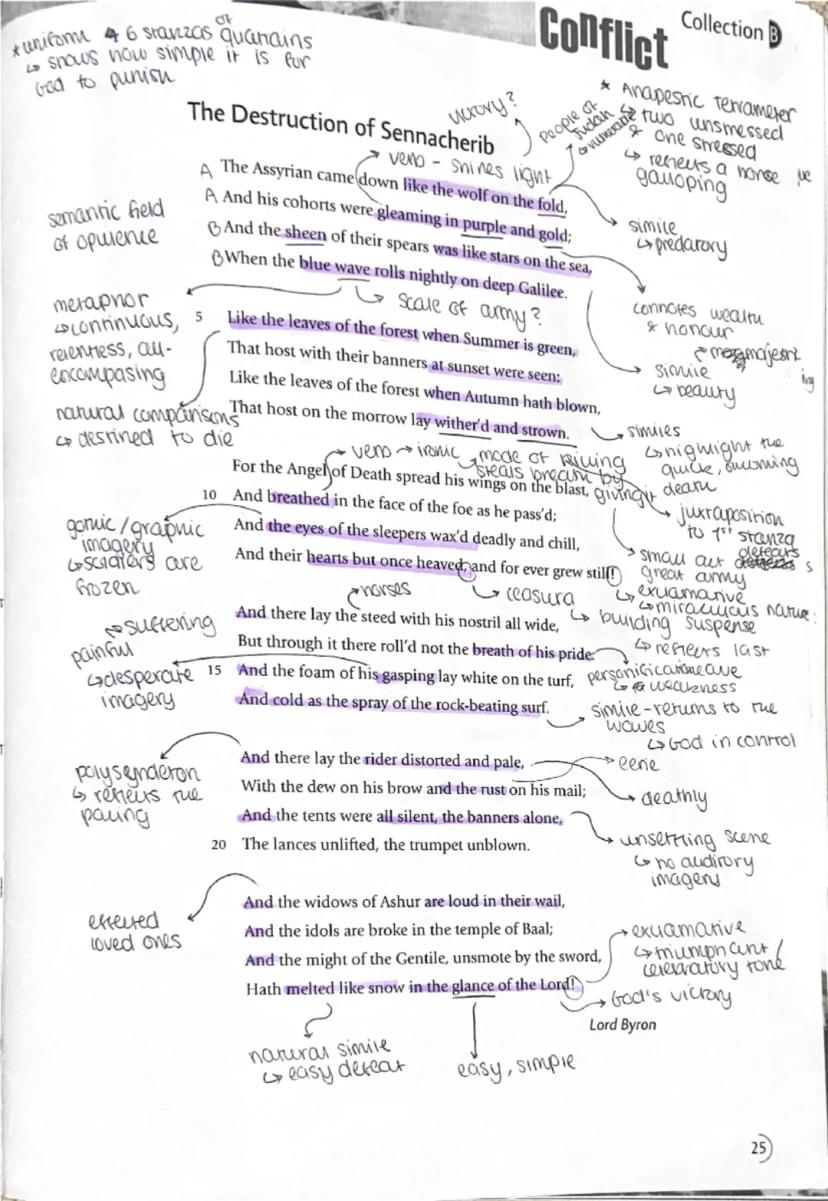 Conflict
Collection B
* uniform 6 stanzas of quatrains
↳ shows how simple it is for
God to punish
The Destruction of Sennacherib
victory?
people of
Judah
vulnerable
* Anapestic Tetrameter
↳ two unstressed
& one stressed
↳ reflects a horse
galloping
verb - shines light
A The Assyrian came down like the wolf on the fold,
A And his cohorts were gleaming in purple and gold;
B And the sheen of their spears was like stars on the sea,
B When the blue wave rolls nightly on deep Galilee.
semantic field
of opulence
simile
↳ predatory
connotes wealth
& honour
↳ scale of army?
metaphor
↳ continuous,
relentless, all-
encompasing
simile
↳ beauty
5 Like the leaves of the forest when Summer is green,
That host with their banners at sunset were seen:
Like the leaves of the forest when Autumn hath blown,
That host on the morrow lay wither'd and strown.
natural comparisons
↳ destined to die
similes
↳ highlight the
quick, oncoming
death
verb → ironic
mode of killing
steals breath by
giving it
For the Angel of Death spread his wings on the blast,
10 And breathed in the face of the foe as he pass'd;
And the eyes of the sleepers wax'd deadly and chill,
And their hearts but once heaved, and for ever grew still!
gothic/graphic
imagery
↳ soldiers are
frozen
juxtaposition
to 1st stanza
small act defeats
great army
↳ exclamative
↳ miraculous nature
↳ ceasura
↳ building suspense
↳ reflects last
heave
horses
And there lay the steed with his nostril all wide,
But through it there roll'd not the breath of his pride:
15 And the foam of his gasping lay white on the turf,
And cold as the spray of the rock-beating surf.
suffering
painful
↳ desperate
imagery
personification
↳ weakness
simile - returns to the
waves
↳ God in control
And there lay the rider distorted and pale,
With the dew on his brow and the rust on his mail;
And the tents were all silent, the banners alone,
20 The lances unlifted, the trumpet unblown.
polysyndeton
↳ reflects the
pacing
eerie
deathly
unsettling scene
↳ no auditory
imagery
And the widows of Ashur are loud in their wail,
And the idols are broke in the temple of Baal;
And the might of the Gentile, unsmote by the sword,
Hath melted like snow in the glance of the Lord!
effected
loved ones
exclamative
↳ triumphant/
celebratory tone
God's victory
Lord Byron
natural simile
↳ easy defeat
easy, simple
25